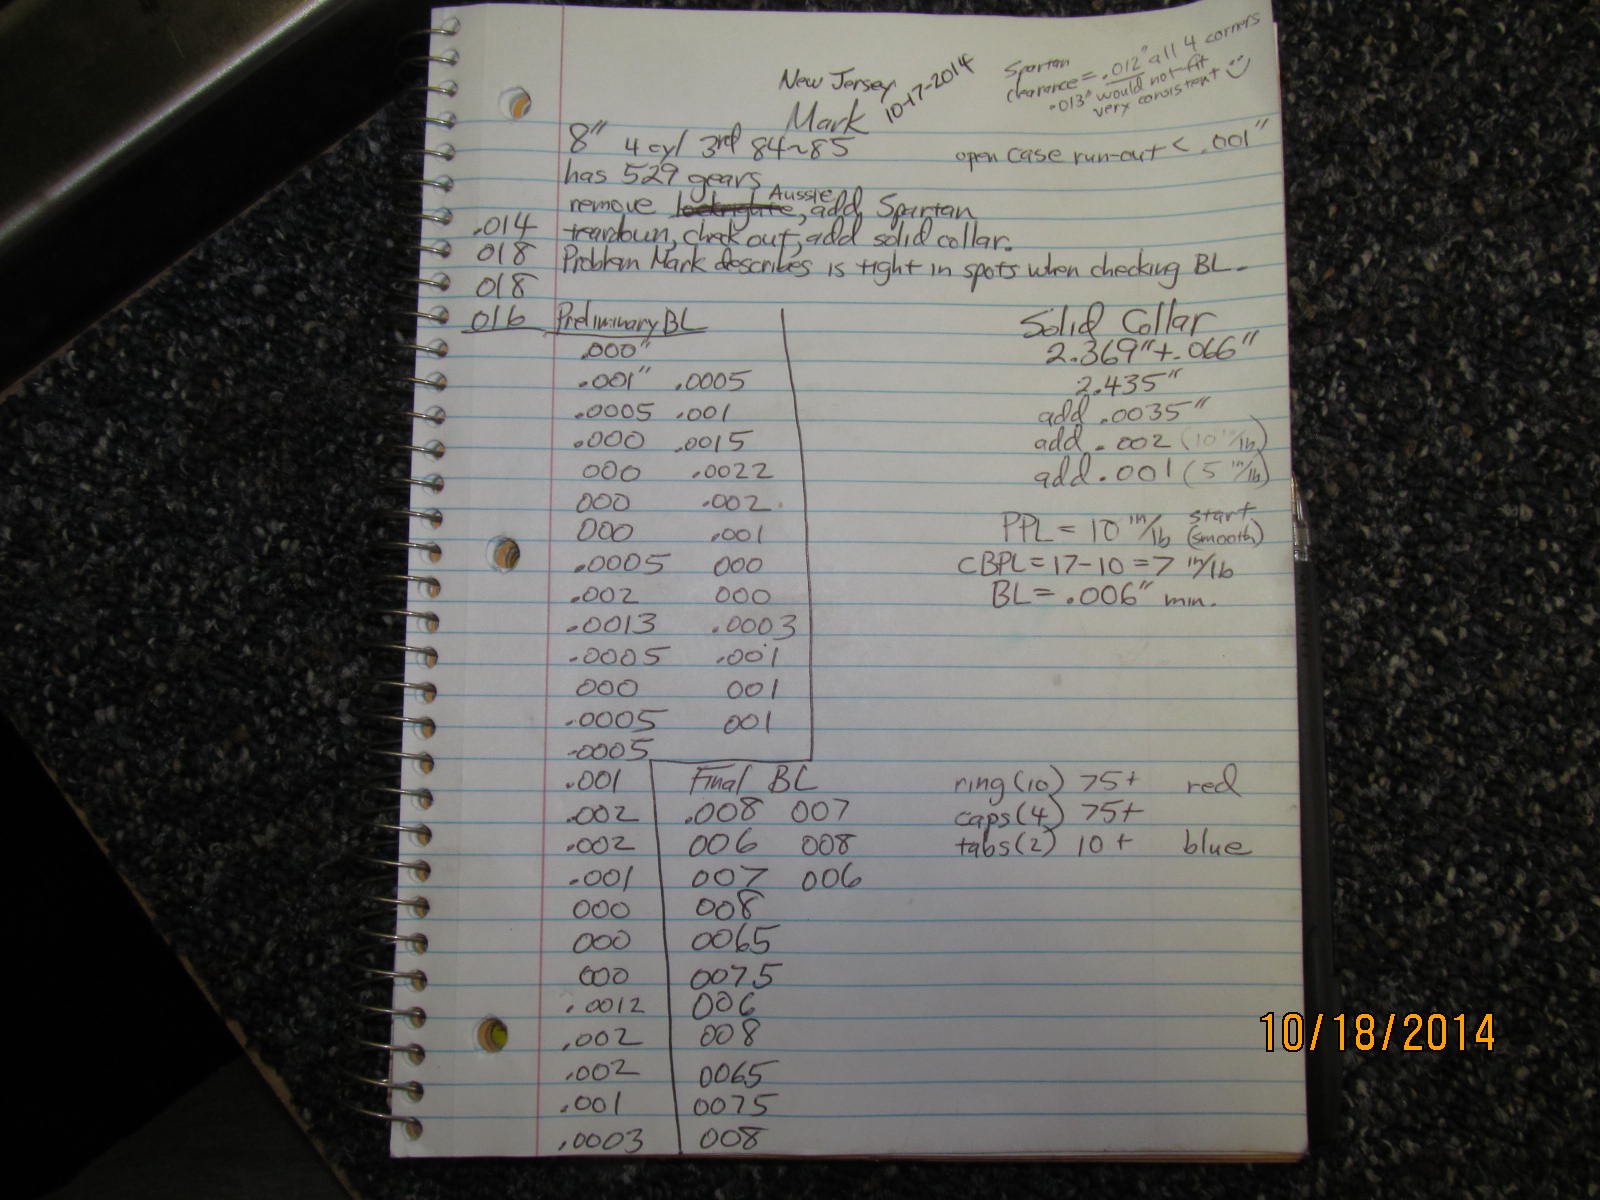 New Jersey
Mark 10-17-2014
Spartan
clearance = .012" all 4 corners
.013" would not fit
very consistent
8" 4 cyl 3rd 84~85
open case run-out < .001"
has 529 gears
Aussie
remove , add Spartan
teardown, check out, add solid collar.
Problem Mark describes is tight in spots when checking BL.
.014
018
018
016
Preliminary BL
.000"
.001" .0005
.0005 .001
.000 .0015
000 .0022
000 .002
000 .001
.0005 000
.002 000
.0013 .0003
.0005 .001
000 001
.0005 001
.0005
.001
.002
.002
.001
000
000
000
.0012
.002
.002
.001
.0003
Final BL
.008 007
006 008
007 006
008
0065
0075
006
008
0065
0075
008
Solid Collar
2.369"+.066"
2.435"
add .0035"
add .002 (10 in/lb)
add .001 (5 in/lb)
PPL = 10 in/lb start (smooth)
CBPL = 17-10 = 7 in/lb
BL = .006" min.
ring (10) 75+ red
caps (4) 75+
tabs (2) 10+ blue
10/18/2014